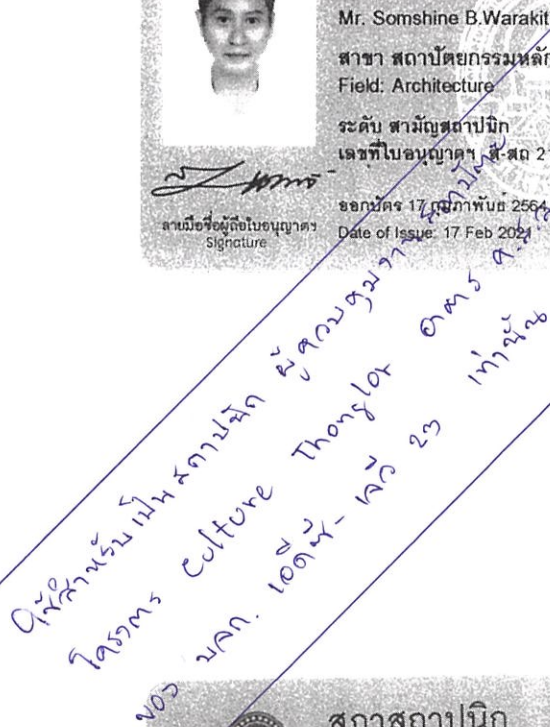 Mr. Somshine B.Warakit
สาขา สถาปัตยกรรมหลัก
Field: Architecture
ระดับ สามัญสถาปนิก
เลขที่ใบอนุญาตฯ ส-สถ 2
ออกบัตร 17 กุมภาพันธ์ 2564
Date of Issue: 17 Feb 2021
ลายมือชื่อผู้ถือใบอนุญาตฯ
Signature
ใช้สำหรับเป็นสถาปนิก ผู้ควบคุมงาน
โครงการ Culture Thonglor อาคาร ค.ส.ล
ของ บลก. เอดีซี-เจวี 23 เท่านั้น
สภาสถาปนิก